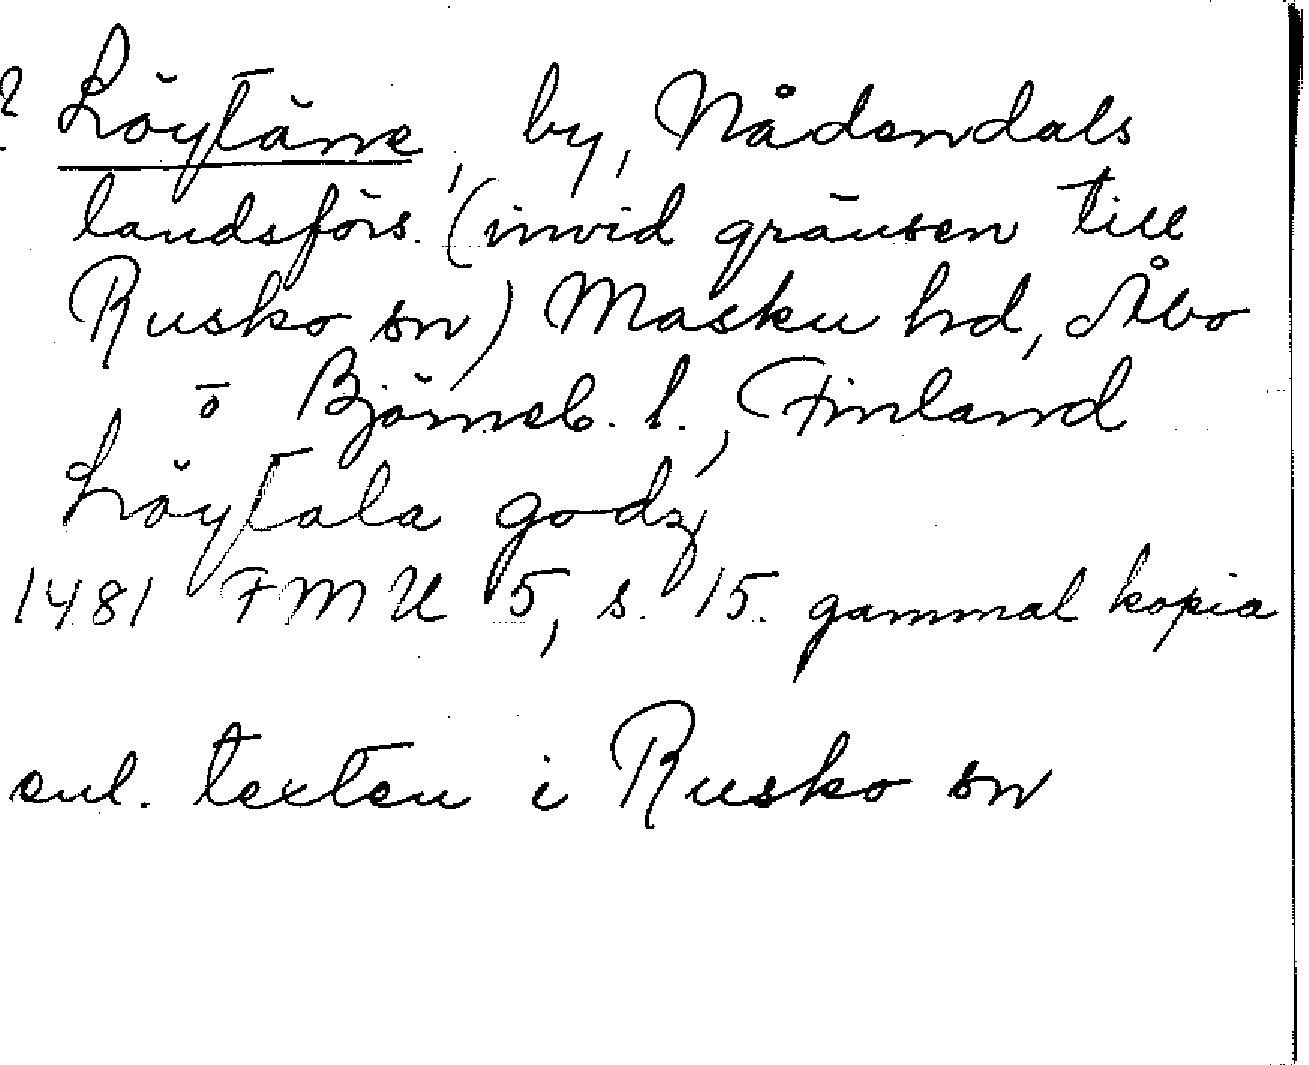 ? Löytäne, by, Nådendals
landsförs. (invid gränsen till
Rusko sn) Masku hd, Åbo
o Björneb. l., Finland
Löytala godz
1481 FMU 5, s. 15. gammal kopia
enl. texten i Rusko sn